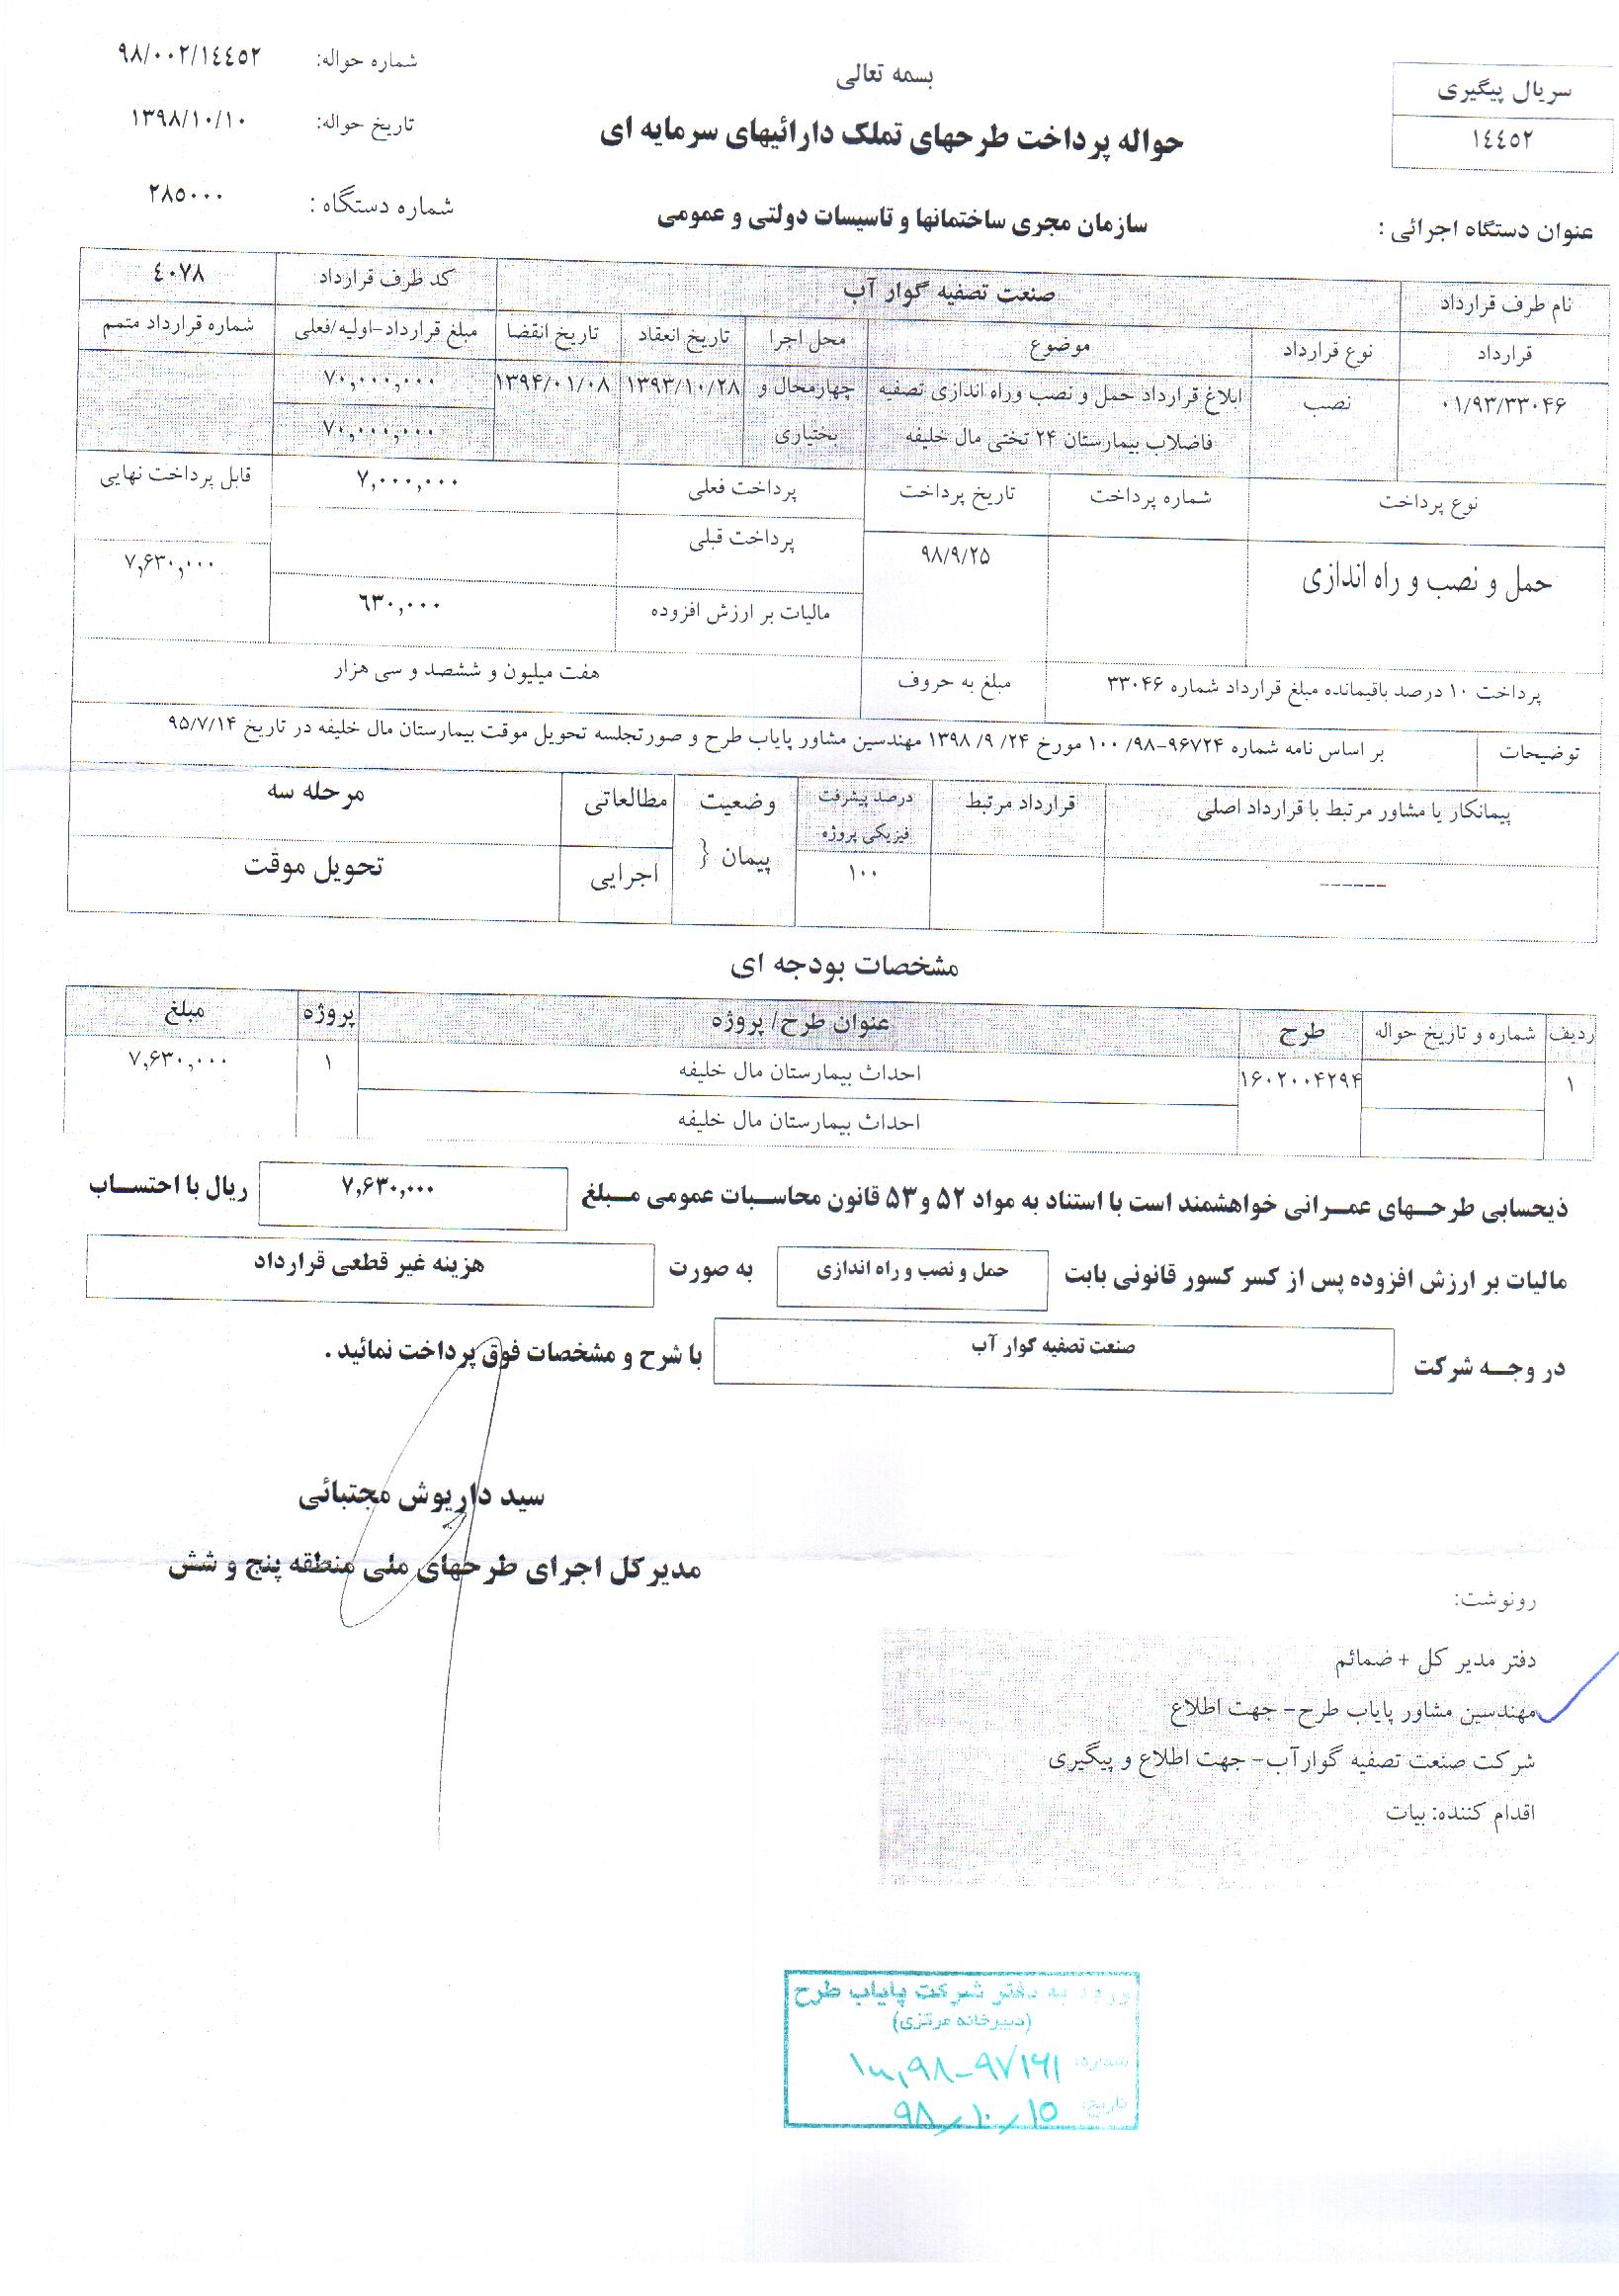 بسمه تعالی
سریال پیگیری
١٤٤٥٢
شماره حواله: ٩٨/٠٠٢/١٤٤٥٢
تاریخ حواله: ١٣٩٨/١٠/١٠
حواله پرداخت طرحهای تملک دارائیهای سرمایه ای
عنوان دستگاه اجرائی : سازمان مجری ساختمانها و تاسیسات دولتی و عمومی
شماره دستگاه : ٢٨٥٠٠٠
نام طرف قرارداد صنعت تصفیه گوار آب کد طرف قرارداد ٤٠٧٨
قرارداد نوع قرارداد موضوع محل اجرا تاریخ انعقاد تاریخ انقضا مبلغ قرارداد-اولیه/فعلی شماره قرارداد متمم
۰۱/۹۳/۳۳۰۴۶ نصب ابلاغ قرارداد حمل و نصب وراه اندازی تصفیه چهارمحال و ۱۳۹۳/۱۰/۲۸ ۱۳۹۴/۰۱/۰۸ ۷۰,۰۰۰,۰۰۰
فاضلاب بیمارستان ۲۴ تختی مال خلیفه بختیاری ۷۰,۰۰۰,۰۰۰
نوع پرداخت شماره پرداخت تاریخ پرداخت پرداخت فعلی ۷,۰۰۰,۰۰۰ قابل پرداخت نهایی
حمل و نصب و راه اندازی ۹۸/۹/۲۵ پرداخت قبلی ۷,۶۳۰,۰۰۰
مالیات بر ارزش افزوده ٦٣٠,٠٠٠
پرداخت ۱۰ درصد باقیمانده مبلغ قرارداد شماره ۳۳۰۴۶ مبلغ به حروف هفت میلیون و ششصد و سی هزار
توضیحات بر اساس نامه شماره ۹۶۷۲۴-۹۸/ ۱۰۰ مورخ ۲۴/ ۹/ ۱۳۹۸ مهندسین مشاور پایاب طرح و صورتجلسه تحویل موقت بیمارستان مال خلیفه در تاریخ ۹۵/۷/۱۴
پیمانکار یا مشاور مرتبط با قرارداد اصلی قرارداد مرتبط درصد پیشرفت فیزیکی پروژه وضعیت پیمان { مطالعاتی مرحله سه
------ ۱۰۰ اجرایی تحویل موقت
مشخصات بودجه ای
ردیف شماره و تاریخ حواله طرح عنوان طرح/ پروژه پروژه مبلغ
۱ ۱۶۰۲۰۰۴۲۹۴ احداث بیمارستان مال خلیفه ۱ ۷,۶۳۰,۰۰۰
احداث بیمارستان مال خلیفه
ذیحسابی طرحهای عمرانی خواهشمند است با استناد به مواد ۵۲ و ۵۳ قانون محاسبات عمومی مبلغ ۷,۶۳۰,۰۰۰ ریال با احتساب
مالیات بر ارزش افزوده پس از کسر کسور قانونی بابت حمل و نصب و راه اندازی به صورت هزینه غیر قطعی قرارداد
در وجه شرکت صنعت تصفیه گوار آب با شرح و مشخصات فوق پرداخت نمائید .
سید داریوش مجتبائی
مدیرکل اجرای طرحهای ملی منطقه پنج و شش
رونوشت:
دفتر مدیر کل + ضمائم
مهندسین مشاور پایاب طرح- جهت اطلاع
شرکت صنعت تصفیه گوارآب- جهت اطلاع و پیگیری
اقدام کننده: بیات
ورود به دفتر شرکت پایاب طرح
(دبیرخانه مرکزی)
شماره: ۱۰۰,۹۸-۹۷۱۶۱
تاریخ: ۹۸/۱۰/۱۵